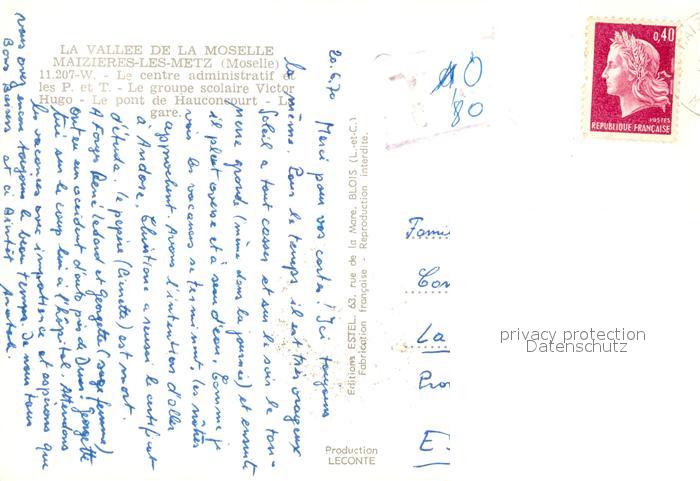 LA VALLEE DE LA MOSELLE
MAIZIERES-LES-METZ (Moselle)
11.207-W. - Le centre administratif de
les P. et T. - Le groupe scolaire Victor
Hugo - Le pont de Hauconcourt - La
gare.
20.6.70
Merci pour vos cartes! Ici toujours
la même. Pour le temps, il est très orageux
Soleil a tout casser et sur le soir le ton-
nerre gronde (même dans la journée) et ensuite
il pleut averse et à seau d'eau. Comme je
vois les vacances se terminent, les nôtres
approchent. Avons l'intention d'aller
à Andorre. Christiane a réussi le certificat
d'étude. le pépère (Cunette) est mort.
A Forges René ladand et Georgette (sage femme)
ont eu un accident d'auto près de Dreux. Georgette
tué sur le coup lui à l'hôpital. Attendons
les vacances avec impatience et espérons que
vous avez encore toujours le beau temps. De nous tous
Bons Baisers et à Bientôt
Editions ESTEL, 63, rue de la Mare, BLOIS (L.-et-C.)
Fabrication française - Reproduction interdite.
Production
LECONTE
0,40
POSTES
REPUBLIQUE FRANÇAISE
80
La
E
privacy protection
Datenschutz